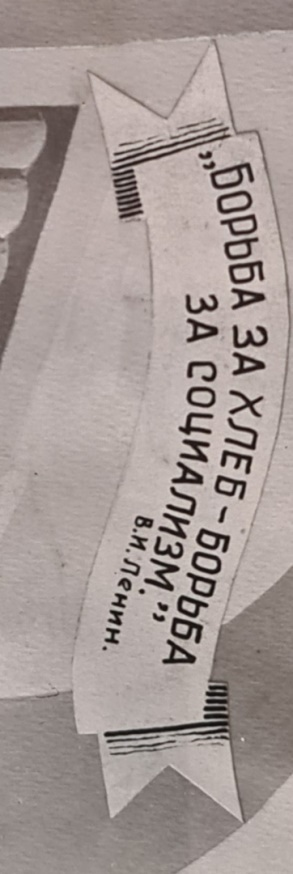 „БОРЬБА ЗА ХЛЕБ - БОРЬБА
ЗА СОЦИАЛИЗМ.”
В.И.Ленин.